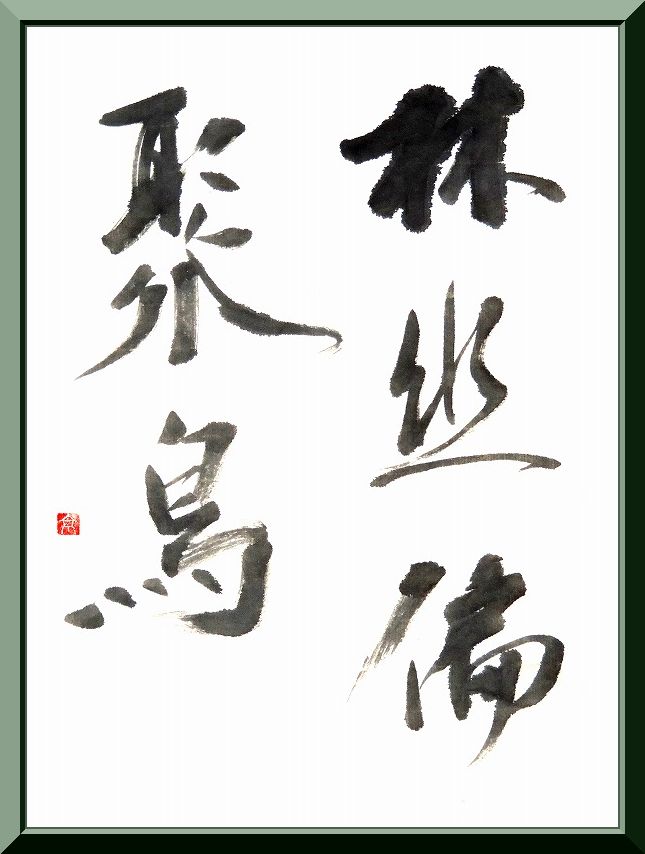 林幽偏
聚鳥